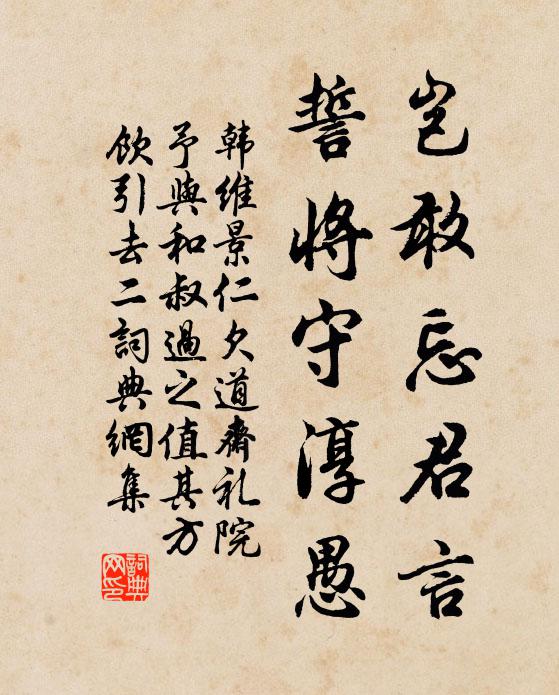 岂敢忘君言
誓将守淳愚
韩维景仁久道斋礼院
予與和叔過之值其方
飲引去二詞典網集
詞典网印